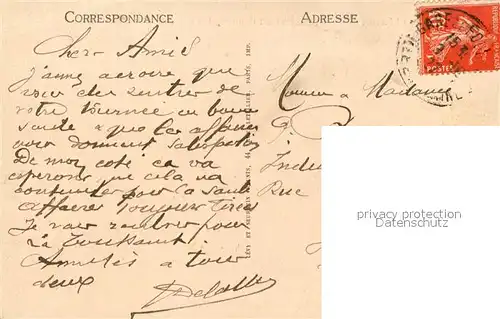 CORRESPONDANCE
ADRESSE
Cher Amis
j'aime a croire que
vous etes rentrer de
votre tournée en bonne
santé & que les affaires
vous donnent satisfaction
De mon coté ca va
esperons que cela va
continuer pour la santé
affaires toujours
Je vais rentrer pour
la Toussaint
Amitiés a tous
deux
Monsieur & Madame
Rue
LEVY ET NEURDEIN RÉUNIS, 44, LETELLIER, PARIS, IMP.
POSTES
privacy protection
Datenschutz